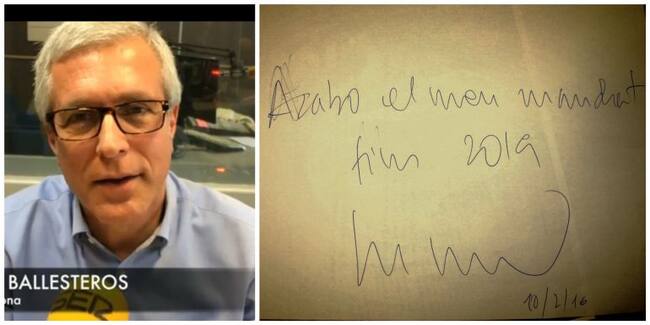 BALLESTEROS
ona
SER
Acabo el meu mandat
fins 2019
10/2/16